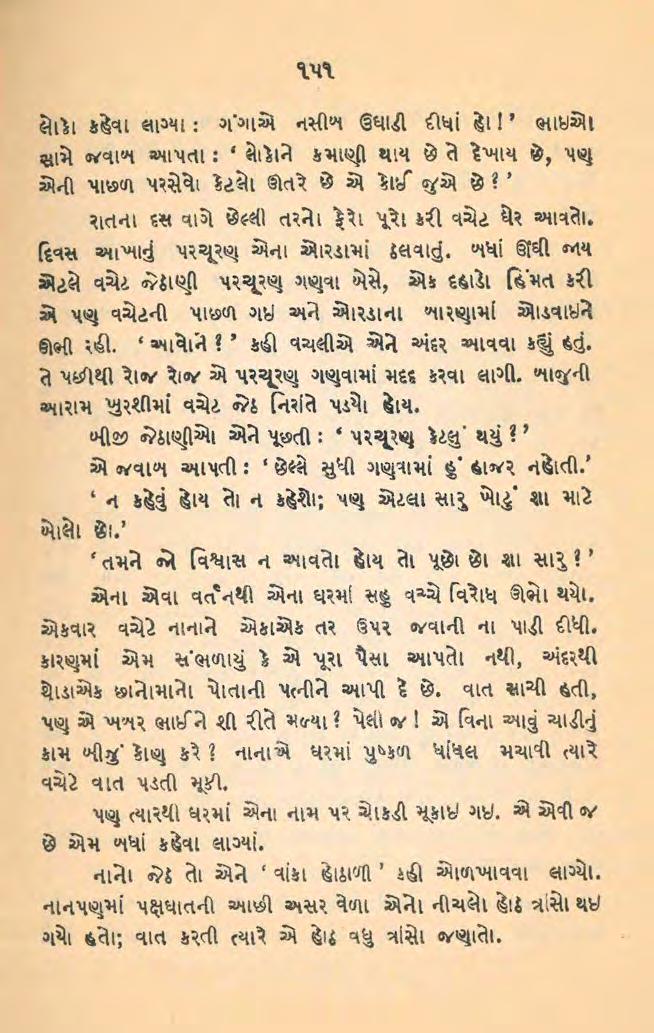 ૧૫૧
લોકો કહેવા લાગ્યા : ગંગાએ નસીબ ઉઘાડી દીધાં હો!’ ભાઇઓ
સામે જવાબ આપતા : ‘ લોકોને કમાણી થાય છે તે દેખાય છે, પણ
એની પાછળ પરસેવો કેટલો ઊતરે છે એ કોઈ જુએ છે ?’
રાતના દસ વાગે છેલ્લી તરનો ફેરો પૂરો કરી વચેટ ઘેર આવતો.
દિવસ આખાનું પરચૂરણ એના ઓરડામાં ઠલવાતું. બધાં ઊંઘી જાય
એટલે વચેટ જેઠાણી પરચૂરણ ગણવા બેસે, એક દહાડો હિંમત કરી
એ પણ વચેટની પાછળ ગઇ અને ઓરડાના બારણામાં ઓડવાઇને
ઊભી રહી. ‘ આવોને ? ’ કહી વચલીએ એને અંદર આવવા કહ્યું હતું.
તે પછીથી રોજ રોજ એ પરચૂરણ ગણવામાં મદદ કરવા લાગી. બાજુની
આરામ ખુરશીમાં વચેટ જેઠ નિરાંતે પડ્યો હોય.
બીજી જેઠાણીઓ એને પૂછતી : ‘ પરચૂરણ કેટલું થયું ?’
એ જવાબ આપતી : ‘છેલ્લે સુધી ગણવામાં હું હાજર નહોતી.’
‘ ન કહેવું હોય તો ન કહેશો; પણ એટલા સારુ ખોટું શા માટે
બોલો છો.’
‘તમને જો વિશ્વાસ ન આવતો હોય તો પૂછો છો શા સારુ ?’
એના એવા વર્તનથી એના ઘરમાં સહુ વચ્ચે વિરોધ ઊભો થયો.
એકવાર વચેટે નાનાને એકાએક તર ઉપર જવાની ના પાડી દીધી.
કારણમાં એમ સંભળાયું કે એ પૂરા પૈસા આપતો નથી, અંદરથી
થોડાએક છાનોમાનો પોતાની પત્નીને આપી દે છે. વાત સાચી હતી,
પણ એ ખબર ભાઈને શી રીતે મળ્યા ? પેલી જ ! એ વિના આવું ચાડીનું
કામ બીજું કોણ કરે ? નાનાએ ઘરમાં પુષ્કળ ધાંધલ મચાવી ત્યારે
વચેટે વાત પડતી મૂકી.
પણ ત્યારથી ઘરમાં એના નામ પર ચોકડી મૂકાઇ ગઇ. એ એવી જ
છે એમ બધાં કહેવા લાગ્યાં.
નાનો જેઠ તો એને ‘ વાંકા હોઠાળી ’ કહી ઓળખાવવા લાગ્યો.
નાનપણમાં પક્ષઘાતની આછી અસર વેળા એનો નીચલો હોઠ ત્રાંસો થઇ
ગયો હતો; વાત કરતી ત્યારે એ હોઠ વધુ ત્રાંસો જણાતો.